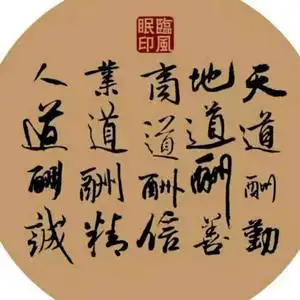 臨風眠印
天道酬勤
地道酬善
商道酬信
業道酬精
人道酬誠